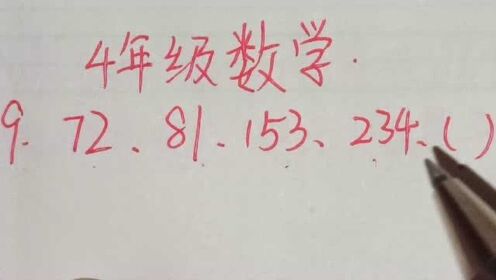 4年级数学.
9. 72、81、153、234、( )